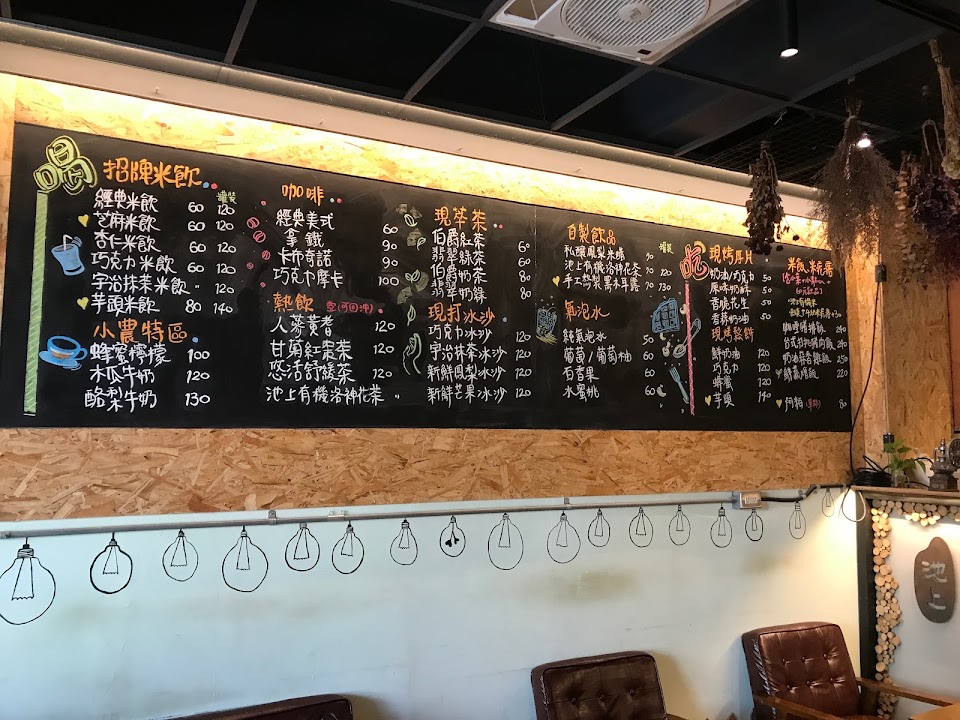 喝
招牌米飲
罐裝
經典米飲 60 120
芝麻米飲 60 120
杏仁米飲 60 120
巧克力米飲 60 120
宇治抹茶米飲 " 120
芋頭米飲 80 140
小農特區
蜂蜜檸檬 100
木瓜牛奶 120
酪梨牛奶 130
咖啡
經典美式 60
拿鐵 90
卡布奇諾 90
巧克力摩卡 100
熱飲 壺(可回沖)
人蔘黃耆 120
甘菊紅棗茶 120
悠活舒緩茶 120
池上有機洛神花茶 "
現萃茶
伯爵紅茶 60
翡翠綠茶 60
伯爵奶茶 80
翡翠奶綠 80
現打冰沙
巧克力冰沙 120
宇治抹茶冰沙 120
新鮮鳳梨冰沙 120
新鮮芒果冰沙 120
自製飲品
罐裝
私釀鳳梨米醋 90 120
池上有機洛神花茶 " 120
手工熬製黑木耳露 70 130
氣泡水
純氣泡水 50
葡萄/葡萄柚 60
百香果 60
水蜜桃 60
吃
現烤厚片
奶油/巧克力 50
原味奶酥 50
香脆花生 50
香蒜奶油 50
現烤鬆餅
鮮奶油 120
巧克力 120
蜂蜜 120
芋頭 140
240
240
250
220
80
池上